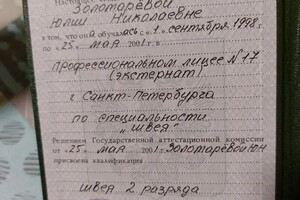 Настоящее
Золотарёвой
Юлии Николаевне
в том, что она обучалась с «1» сентября 1998 г.
по «25» мая 2001 г. в
Профессиональном лицее №17
(экстернат)
г Санкт-Петербурга
по специальности
„швея"
Решением Государственной аттестационной комиссии
от «25» мая 2001 Золотарёвой ЮН
присвоена квалификация
швея 2 разряда